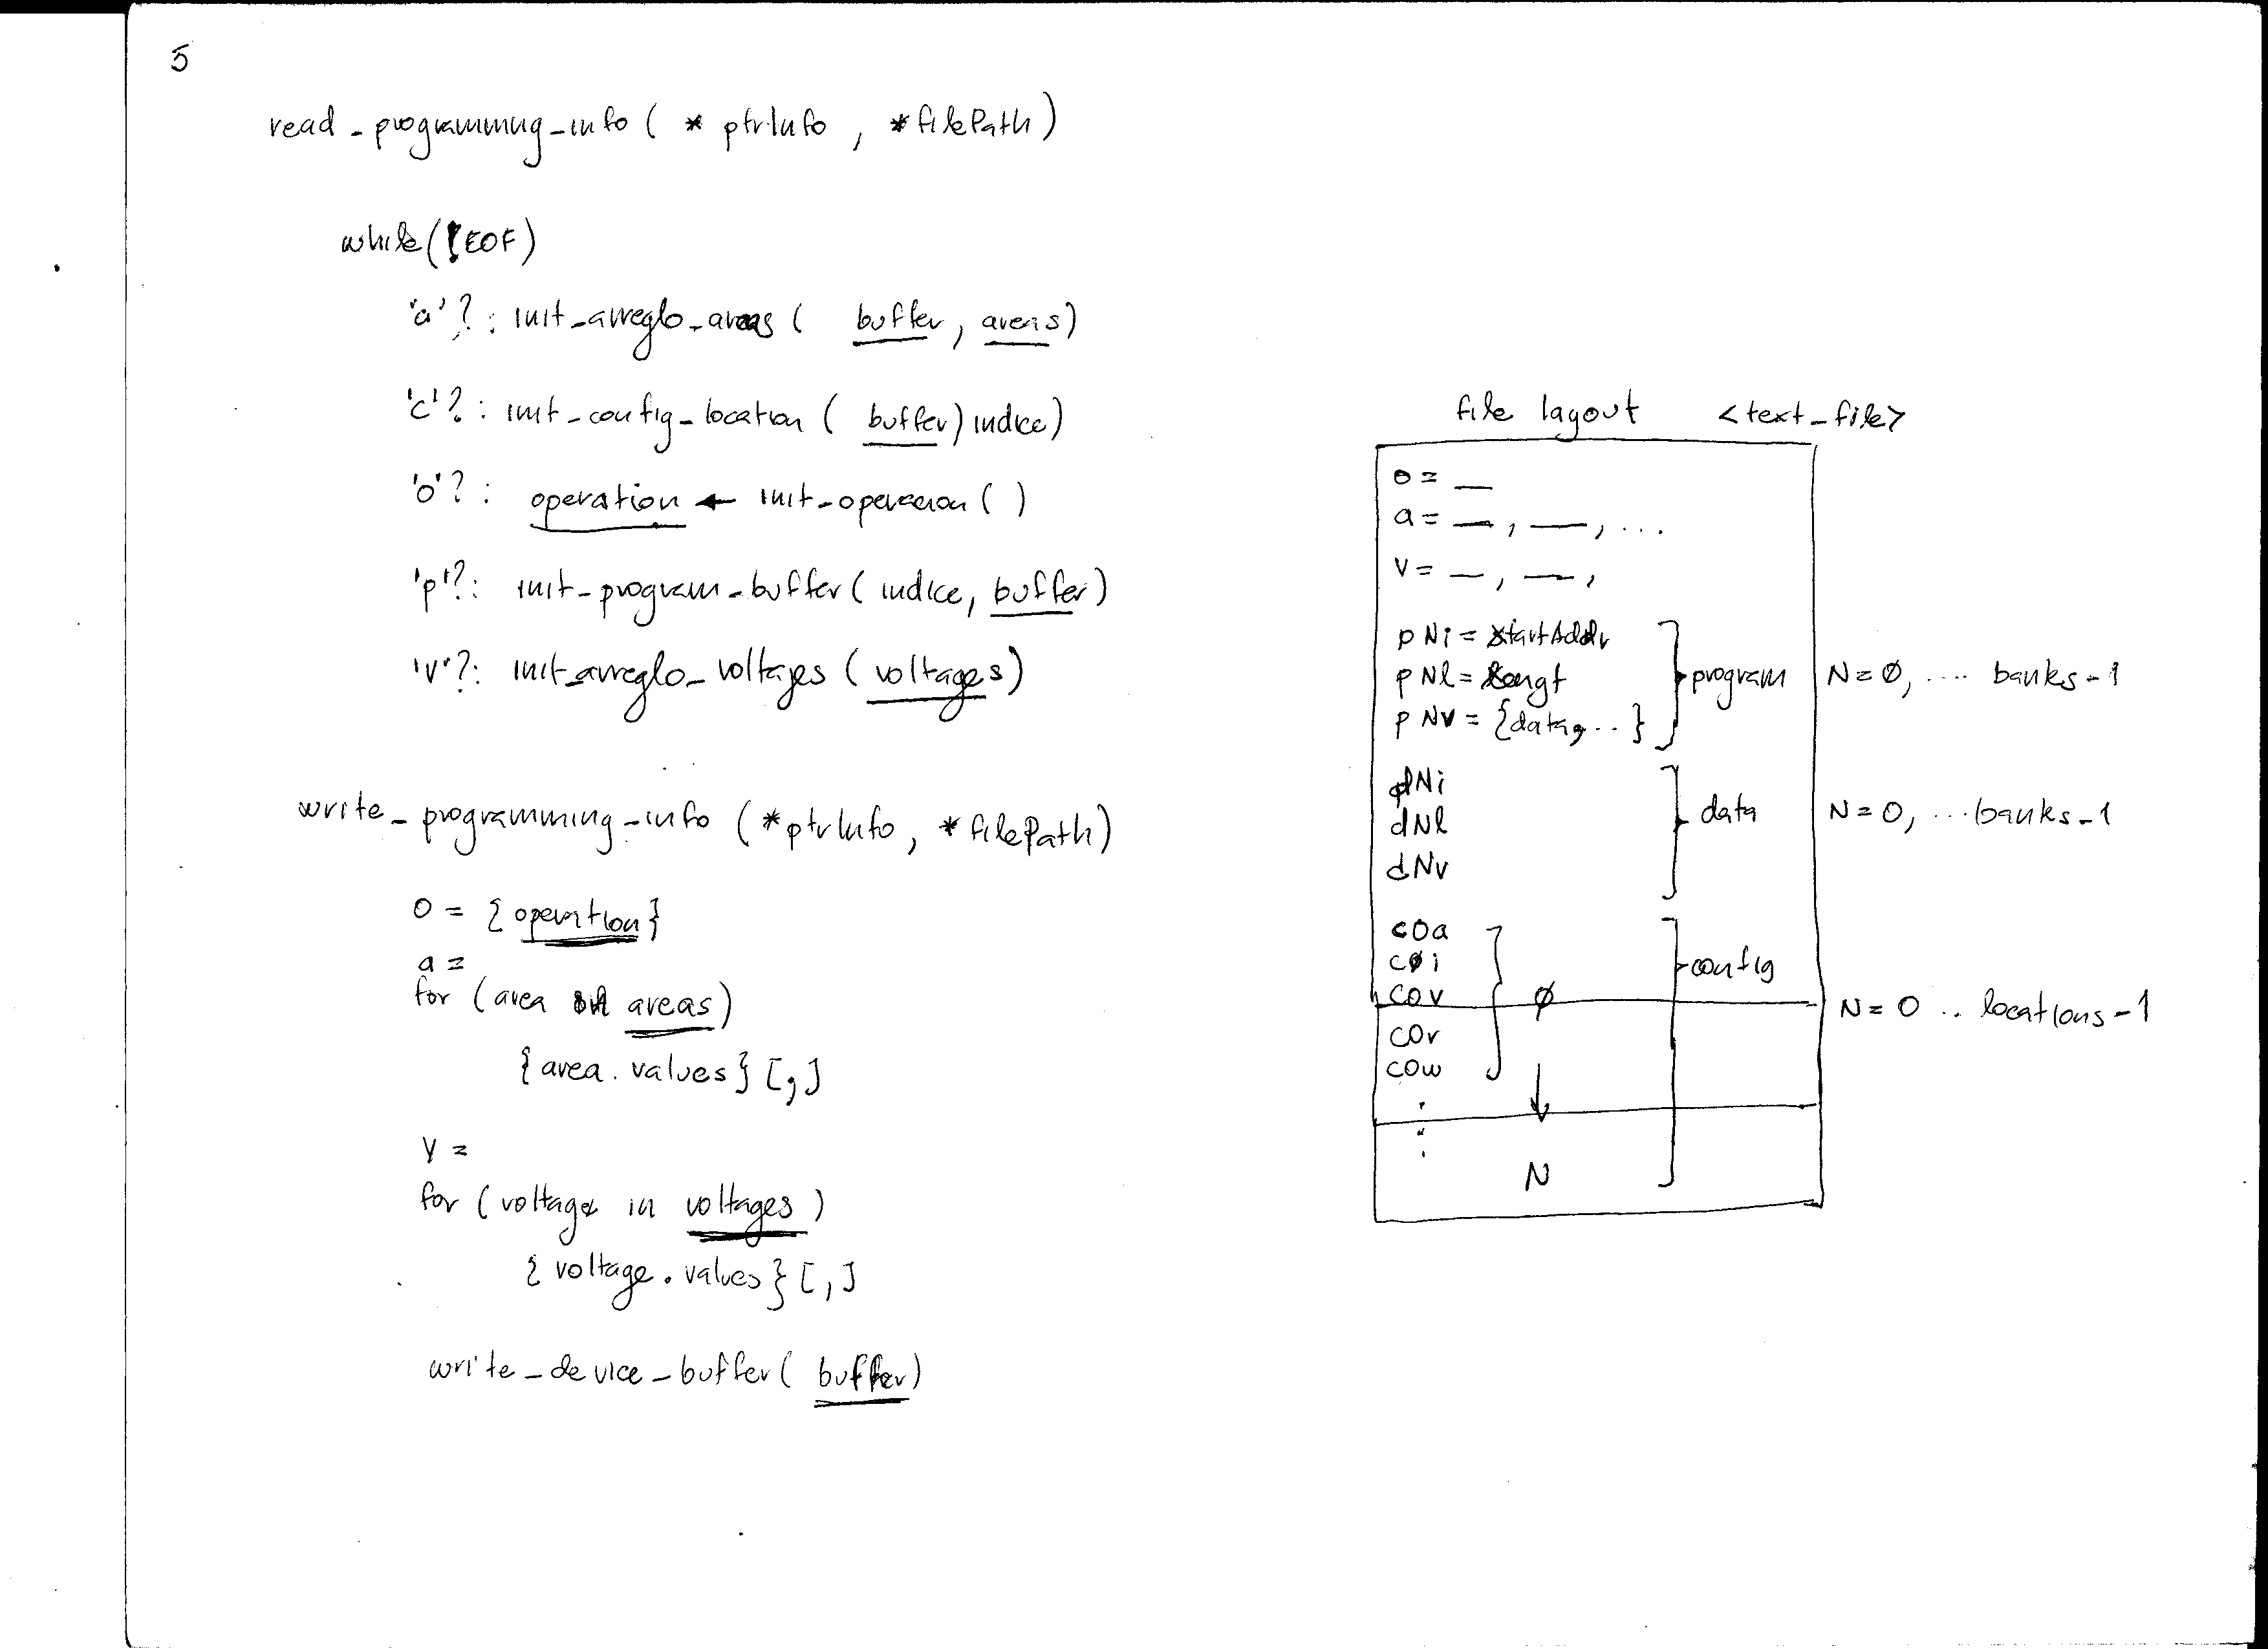 5
read_programming_info ( * ptrInfo , *filePath)
while(!EOF)
'a'?: init_arreglo_areas ( buffer, areas)
'c'?: init_config_location ( buffer) indice)
'o'?: operation ← init_operacion ( )
'p'?: init_program_buffer( indice, buffer)
'v'?: init_arreglo_voltajes ( voltages)
write_programming_info (*ptrInfo, *filePath)
o = {operation}
a =
for (area in areas)
{area.values} [,]
v =
for (voltage in voltages )
{voltage.values} [,]
write_device_buffer( buffer)
file layout <text_file>
o = __
a = __, __, ...
v = __, __,
pNi = startAddr
pNl = longt
pNv = {data, ..}
program
N=Ø, .... banks-1
dNi
dNl
dNv
data
N=0, ...banks-1
c0a
cØi
c0v
c0r
c0w
Ø
↓
N
config
N=0 .. locations-1